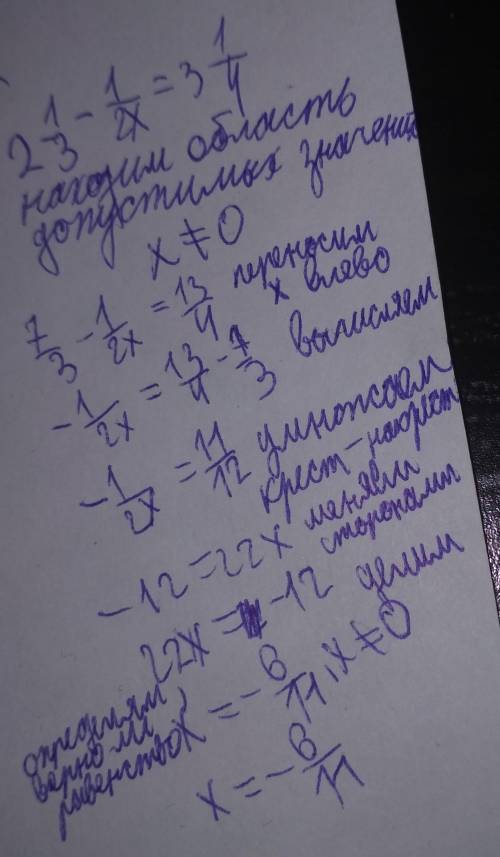 2 1/3 - 1/2x = 3 1/4
находим область
допустимых значений
x ≠ 0
7/3 - 1/2x = 13/4 переносим
x влево
-1/2x = 13/4 - 7/3 вычисляем
-1/2x = 11/12 умножаем
крест-накрест
-12 = 22x меняем
сторонами
22x = -12 делим
определям
верно ли
равенство
x = -6/11, x ≠ 0
x = -6/11